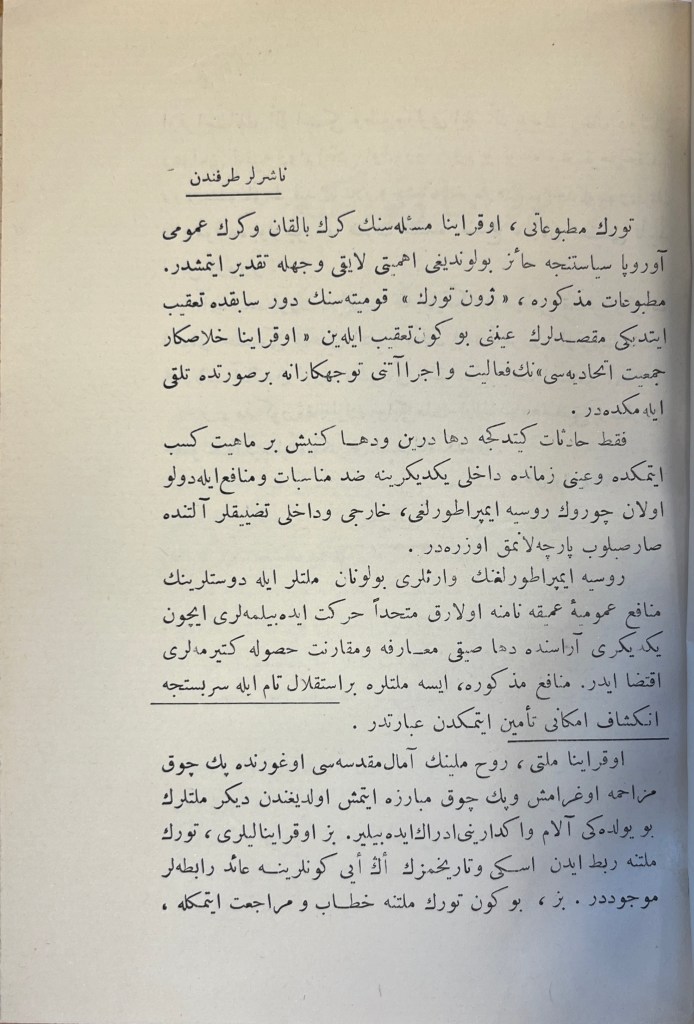 ناشرلر طرفندن
تورك مطبوعاتی ، اوقراینا مسئله‌سنك كرك بالقان و كرك عمومی
آوروپا سیاستنجه حائز بولوندیغی اهمیتی لایقی وجهله تقدیر ایتمشدر.
مطبوعات مذكوره ، « ژون تورك » قومیته‌سنك دور سابقده تعقیب
ایتدیكی مقصدلرك عیننی بو كون تعقیب ایله‌ین « اوقراینا خلاصكار
جمعیت اتحادیه‌سی» نك فعالیت و اجراآتنی توجهكارانه برصورتده تلقی
ایله‌مكده‌در .
فقط حادثات كیتدكجه دها درین ودها كنیش بر ماهیت كسب
ایتمكده وعینی زمانده داخلی یكدیگرینه ضد مناسبات ومنافع ایله‌دولو
اولان چوروك روسیه ایمپراطورلغی، خارجی وداخلی تضییقلر آلتنده
صارصیلوب پارچه‌لانمق اوزره‌در .
روسیه ایمپراطورلغنك وارثلری بولونان ملتلر ایله دوستلرینك
منافع عمومیهٔ عمیقه نامنه اولارق متحداً حركت ایده‌بیلمه‌لری ایچون
یكدیكری آراسنده دها صیقی معارفه ومقارنت حصوله كتیرمه‌لری
اقتضا ایدر. منافع مذكوره، ایسه ملتلره براستقلال تام ایله سربستجه
انكشاف امكانی تأمین ایتمكدن عبارتدر .
اوقراینا ملتی ، روح ملینك آمال‌مقدسه‌سی اوغورنده پك چوق
مزاحمه اوغرامش وپك چوق مبارزه ایتمش اولدیغندن دیكر ملتلرك
بو یولده‌كی آلام واكدارینی‌ادراك‌ایده‌بیلیر. بز اوقراینالیلری ، تورك
ملتنه ربط ایدن اسكی وتاریخمزك اڭ أیی كونلرینه عائد رابطه‌لر
موجوددر . بز ، بو كون تورك ملتنه خطاب و مراجعت ایتمكله ،